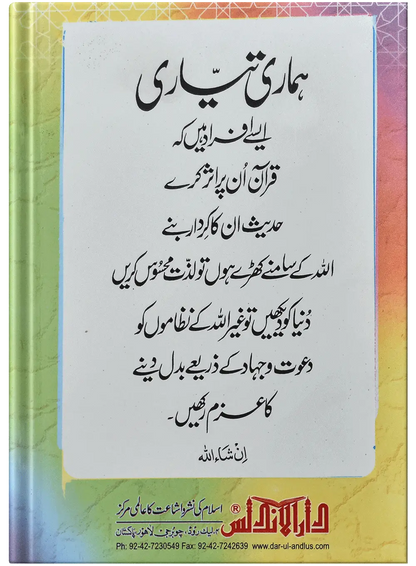 ہماری تیّاری
ایسے افراد ہیں کہ
قرآن اُن پر اثر کرے
حدیث ان کا کردار بنے
اللہ کے سامنے کھڑے ہوں تو لذّت محسوس کریں
دُنیا کو دیکھیں تو غیر اللہ کے نظاموں کو
دعوت و جہاد کے ذریعے بدل دینے
کا عزم رکھیں۔
اِنْ شَاءَ اللہ
دارالاندلس ®
اسلام کی نشر و اشاعت کا عالمی مرکز
4۔لیک روڈ، چوبرجی لاہور، پاکستان
Ph: 92-42-7230549 Fax: 92-42-7242639 www.dar-ul-andlus.com